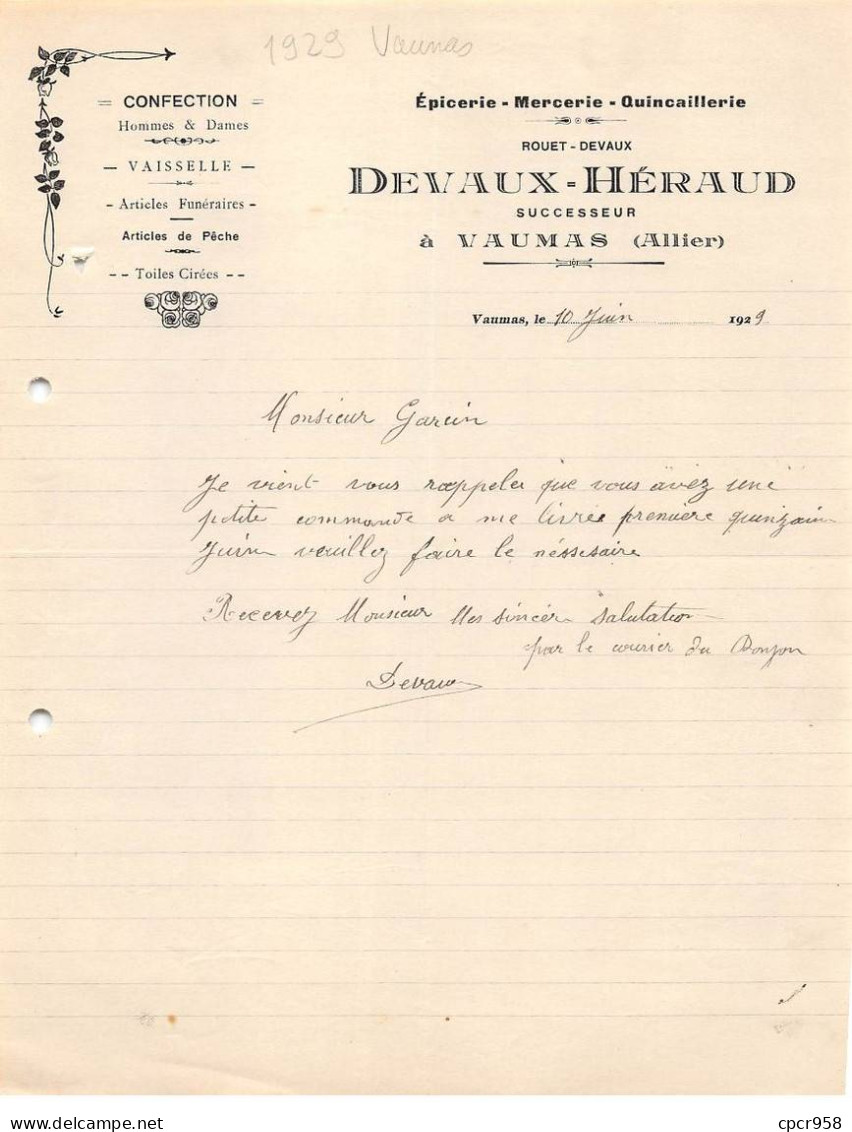 1929 Vaumas
= CONFECTION =
Hommes & Dames
— VAISSELLE —
- Articles Funéraires -
Articles de Pêche
- - Toiles Cirées - -
Épicerie - Mercerie - Quincaillerie
ROUET - DEVAUX
DEVAUX - HÉRAUD
SUCCESSEUR
à VAUMAS (Allier)
Vaumas, le 10 Juin 1929
Monsieur Garcin
Je vient vous rappeler que vous avez une
petite commande a me livrée première quinzain
Juin veuillez faire le néssesaire
Recevez Monsieur Mes sincère salutation
par le courier du Donjon
Devaux
delcampe.net
cpcr958